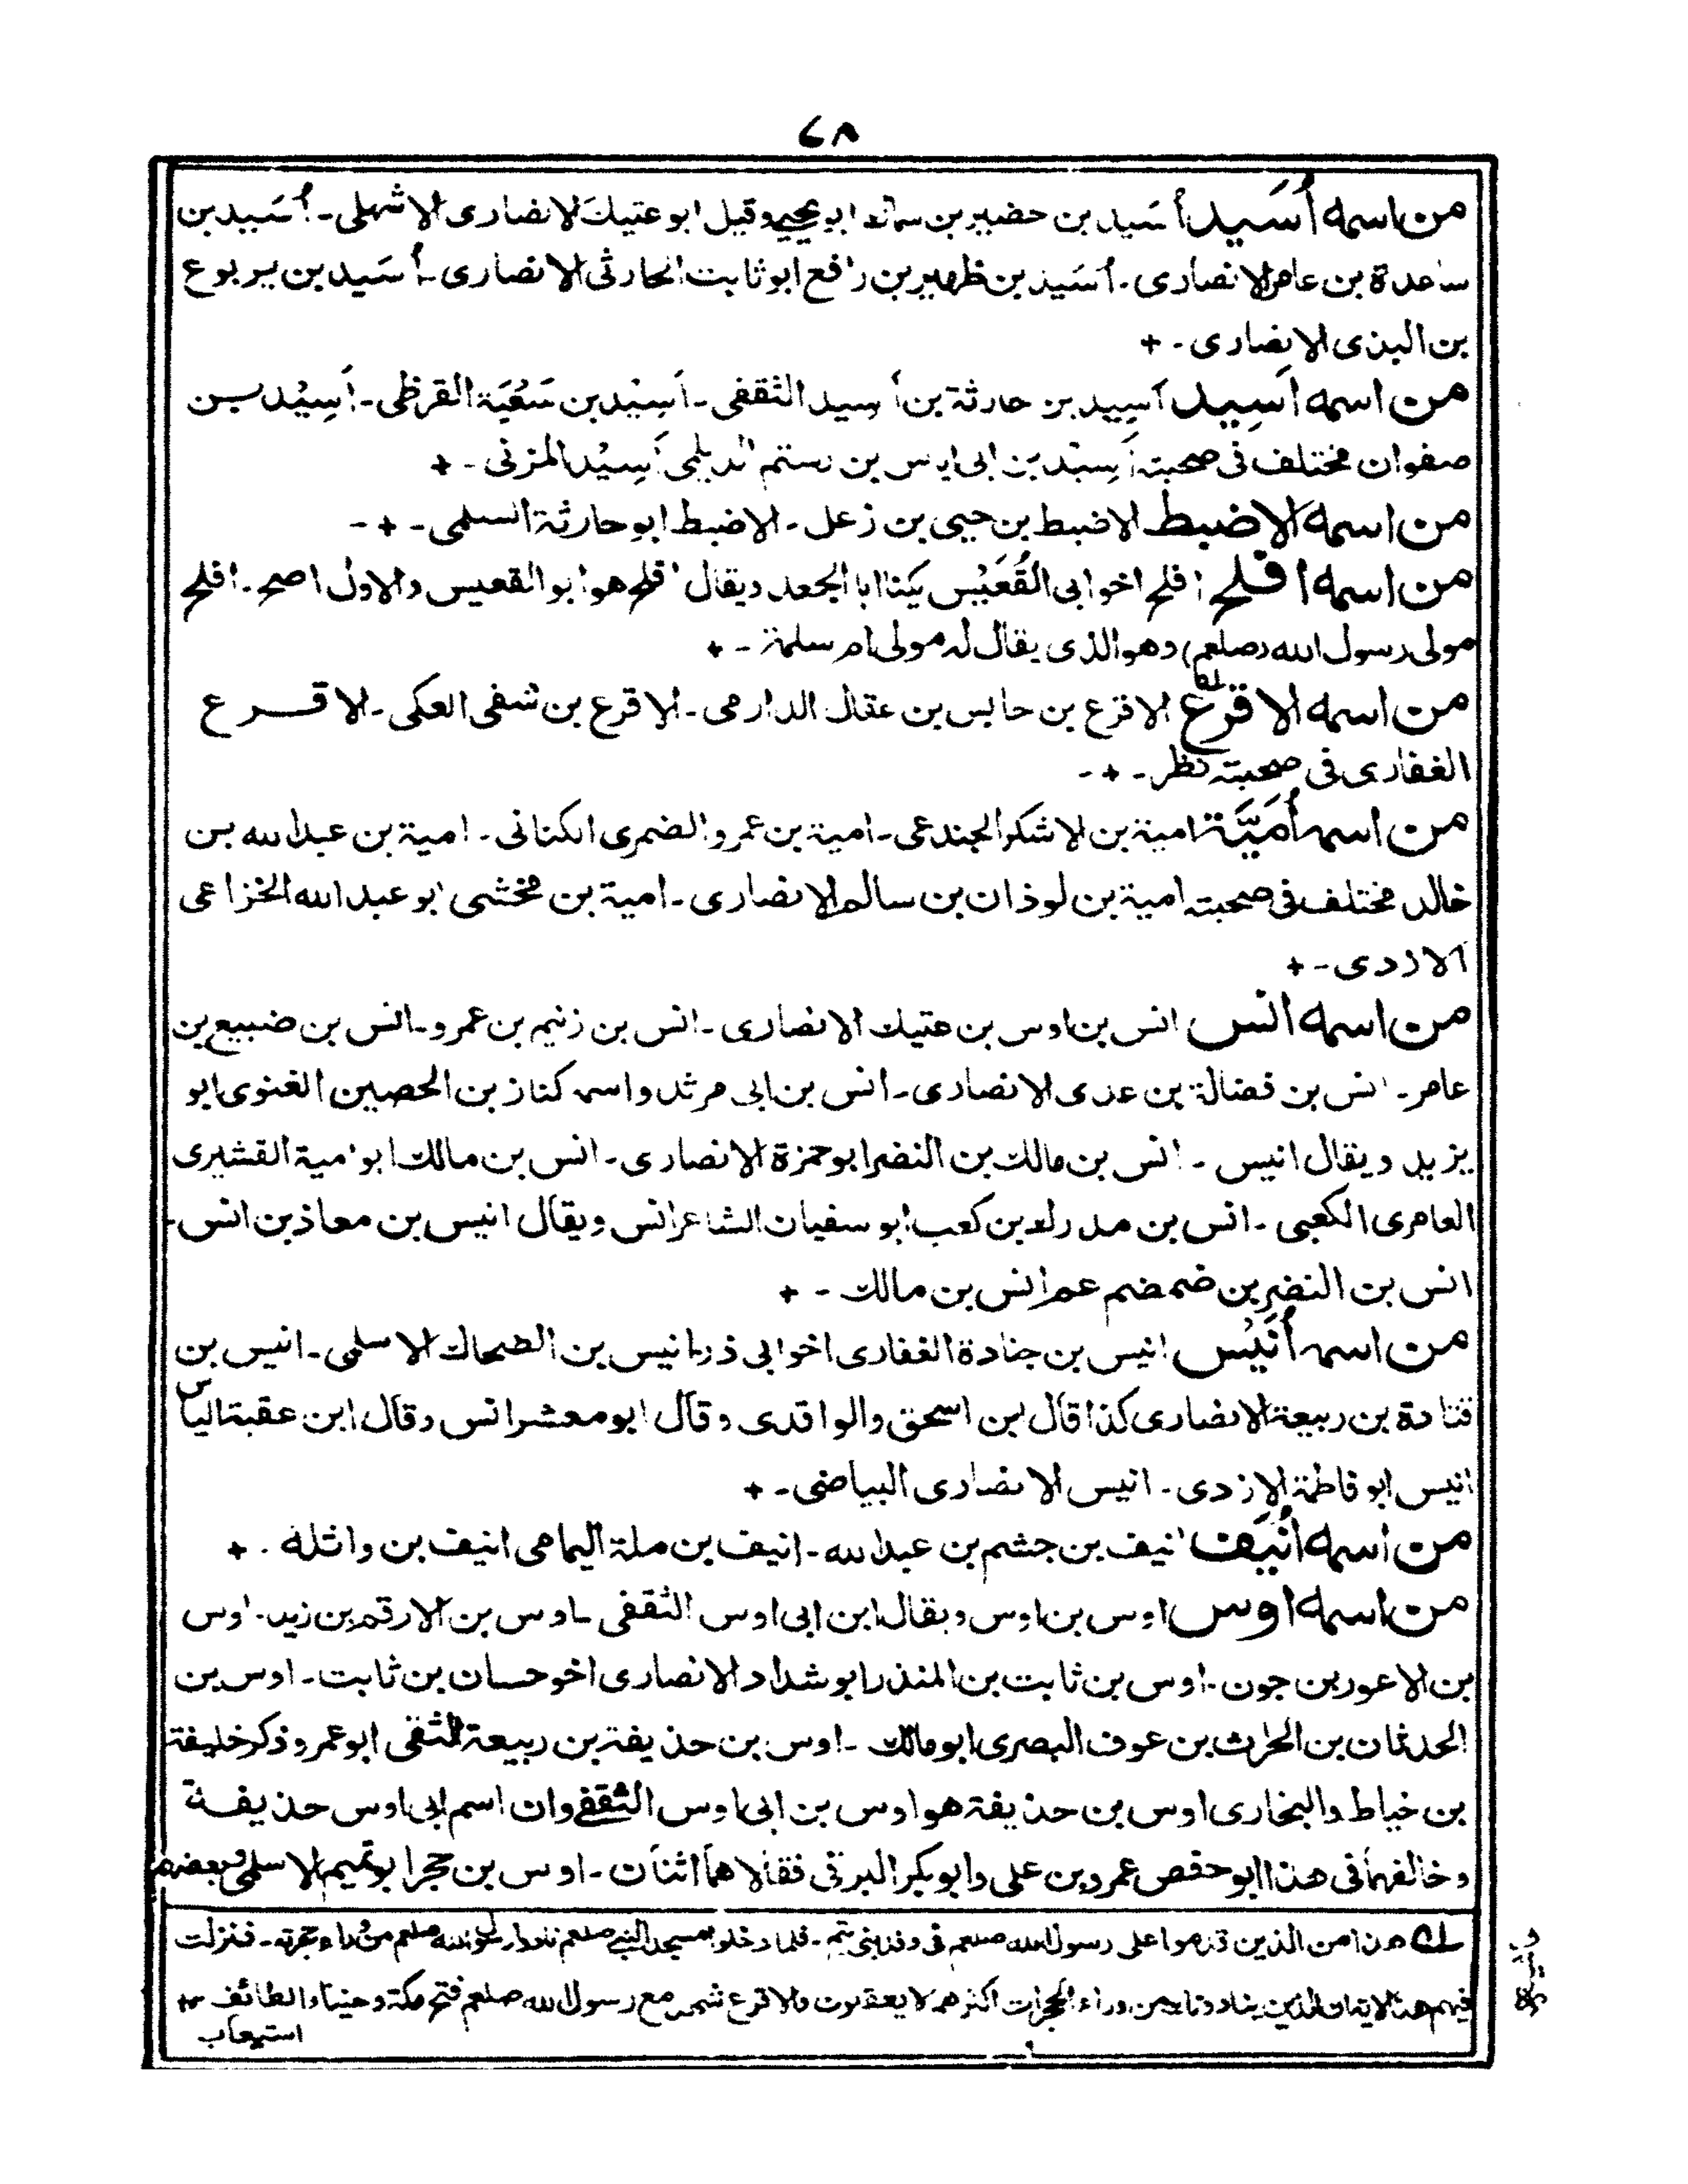 ٦٨
من اسمه أُسَيد أُسَيد بن حضير بن سماك ابو يحيى وقيل ابو عتيك الانصارى الاشهلى ـ أُسَيد بن
ساعدة بن عامر الانصارى ـ أُسَيد بن ظهير بن رافع ابو ثابت الحارثى الانصارى ـ أُسَيد بن يربوع
بن البدى الانصارى ـ +
من اسمه اَسِيد اَسِيد بن حارثة بن اَسيد الثقفى ـ اَسِيد بن سَعْيَة القرظى ـ اَسِيْد بن
صفوان مختلف فى صحبته اَسِيد بن ابى اياس بن رستم الديلمى اَسِيْد المزنى ـ +
من اسمه الاضبط الاضبط بن حيى بن زعل ـ الاضبط ابو حارثة السلمى ـ + ـ
من اسمه افلح افلح اخو ابى القُعَيْس يكنا ابا الجعد ويقال افلح هو ابو القعيس والاول اصح ـ افلح
مولى رسول الله (صلعم) وهو الذى يقال له مولى ام سلمة ـ +
من اسمه الاقرع الاقرع بن حابس بن عقال الدارمى ـ الاقرع بن شفى العكى ـ الاقرع
الغفارى فى صحبته نظر ـ + ـ
من اسمه أُمَيَّة امية بن لاشكر الجندعى ـ امية بن عمرو الضمرى الكنانى ـ امية بن عبد الله بن
خالد مختلف فى صحبته امية بن لوذان بن سالم الانصارى ـ امية بن مخشى ابو عبد الله الخزاعى
الازدى ـ +
من اسمه انس انس بن اوس بن عتيك الانصارى ـ انس بن زنيم بن عمرو ـ انس بن ضبيع بن
عامر ـ انس بن فضالة بن عدى الانصارى ـ انس بن ابى مرثد واسمه كناز بن الحصين الغنوى ابو
يزيد ويقال انيس ـ انس بن مالك بن النضر ابو حمزة الانصارى ـ انس بن مالك ابو امية القشيرى
العامرى الكعبى ـ انس بن مدرك بن كعب ابو سفيان الشاعر انس ويقال انيس بن معاذ بن انس ـ
انس بن النضر بن ضمضم عم انس بن مالك ـ +
من اسمه أُنَيْس انيس بن جنادة الغفارى اخو ابى ذر انيس بن الضحاك الاسلمى ـ انيس بن
قتادة بن ربيعة الانصارى كذا قال ابن اسحق والواقدى وقال ابو معشر انس وقال ابن عقبة الياس
انيس ابو فاطمة الازدى ـ انيس الانصارى البياضى ـ +
من اسمه أُنَيف انيف بن جشم بن عبد الله ـ انيف بن ملة اليمامى انيف بن واثلة . +
من اسمه اوس اوس بن اوس ويقال ابن ابى اوس الثقفى ـ اوس بن الارقم بن زيد ـ اوس
بن الاعور بن جون ـ اوس بن ثابت بن المنذر ابو شداد الانصارى اخو حسان بن ثابت ـ اوس بن
الحدثان بن الحرث بن عوف البصرى ابو مالك ـ اوس بن حذيفة بن ربيعة الثقفى ابو عمرو ذكر خليفة
بن خياط والبخارى اوس بن حذيفة هو اوس بن ابى اوس الثقفى وان اسم ابى اوس حذيفة
وخالفهما فى هذا ابو حفص عمرو بن على وابو بكر البرقى فقالا هما اثنان ـ اوس بن حجر ابو تميم الاسلمى وبعضهم
له هذا من الذين قدموا على رسول الله صلعم فى وفد بنى تميم ـ فلما دخلوا مسجد النبى صلعم نادوا رسول الله صلعم من وراء حجرته ـ فنزلت
فيهم هذه الاية ان الذين ينادونك من وراء الحجرات اكثرهم لا يعقلون والاقرع شهد مع رسول الله صلعم فتح مكة وحنينا والطائف ١٢
استيعاب